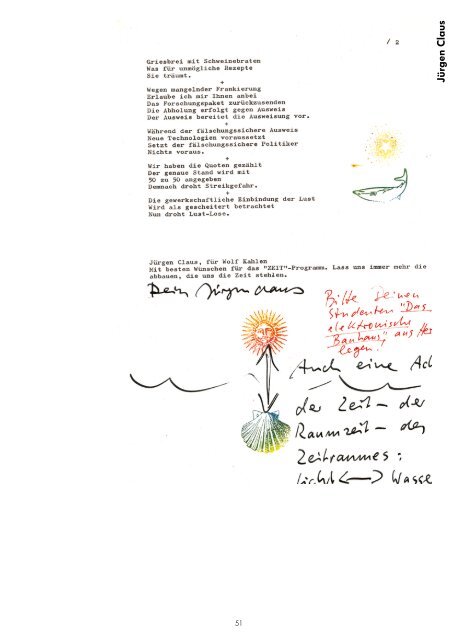 Jürgen Claus
/ 2
Griesbrei mit Schweinebraten
Was für unmögliche Rezepte
Sie träumt.
+
Wegen mangelnder Frankierung
Erlaube ich mir Ihnen anbei
Das Forschungspaket zurückzusenden
Die Abholung erfolgt gegen Ausweis
Der Ausweis bereitet die Ausweisung vor.
+
Während der fälschungssichere Ausweis
Neue Technologien voraussetzt
Setzt der fälschungssichere Politiker
Nichts voraus.
+
Wir haben die Quoten gezählt
Der genaue Stand wird mit
50 zu 50 angegeben
Demnach droht Streikgefahr.
+
Die gewerkschaftliche Einbindung der Lust
Wird als gescheitert betrachtet
Nun droht Lust-Lose.
Jürgen Claus, für Wolf Kahlen
Mit besten Wünschen für das "ZEIT"-Programm. Lass uns immer mehr die
abbauen, die uns die Zeit stehlen.
Dein Jürgen Claus
Bitte Deinen
Studenten "Das
elektronische
Bauhaus", ans Her
legen.
Auch eine Ad
der Zeit – der
Raumzeit – des
Zeitraumes:
Licht <—> Wasse
51